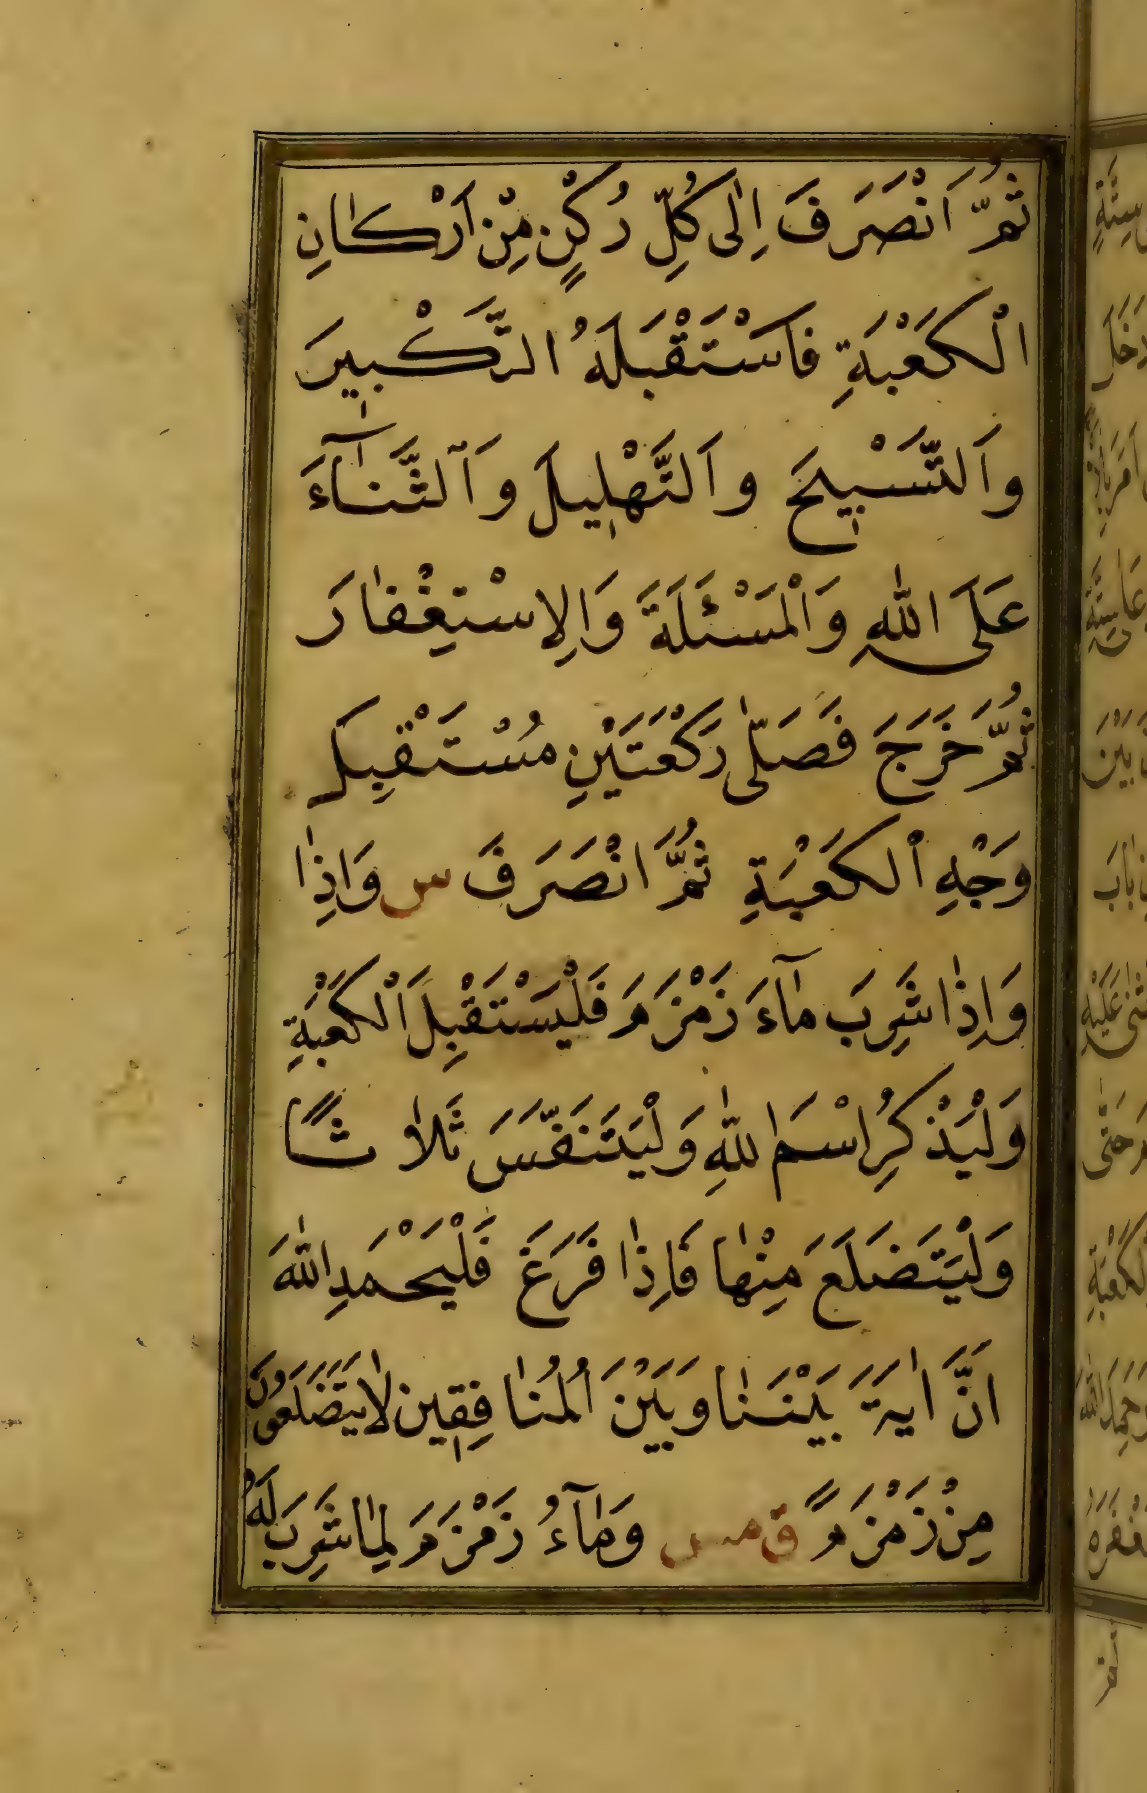 ثُمَّ انْصَرَفَ اِلٰى كُلِّ رُكْنٍ مِنْ اَرْكَانِ
الْكَعْبَةِ فَاسْتَقْبَلَهُ التَّكْبِيرَ
وَالتَّسْبِيحَ وَالتَّهْلِيلَ وَالثَّنَآءَ
عَلَى اللّٰهِ وَالْمَسْئَلَةَ وَالِاسْتِغْفَارَ
ثُمَّ خَرَجَ فَصَلّٰى رَكْعَتَيْنِ مُسْتَقْبِلَ
وَجْهِ الْكَعْبَةِ ثُمَّ انْصَرَفَ س وَاِذَا
وَاِذَا شَرِبَ مَآءَ زَمْزَمَ فَلْيَسْتَقْبِلِ الْكَعْبَةِ
وَلْيَذْكُرِ اسْمَ اللّٰهِ وَلْيَتَنَفَّسَ ثَلَاثًا
وَلْيَتَضَلَعَ مِنْهَا فَاِذَا فَرَغَ فَلْيَحْمَدِ اللّٰهَ
اِنَّ اٰيَةَ بَيْنَنَا وَبَيْنَ الْمُنَافِقِينَ لَا يَتَضَلَعُونَ
مِنْ زَمْزَمَ ق مس وَمَآءُ زَمْزَمَ لِمَا شَرِبَ لَهُ